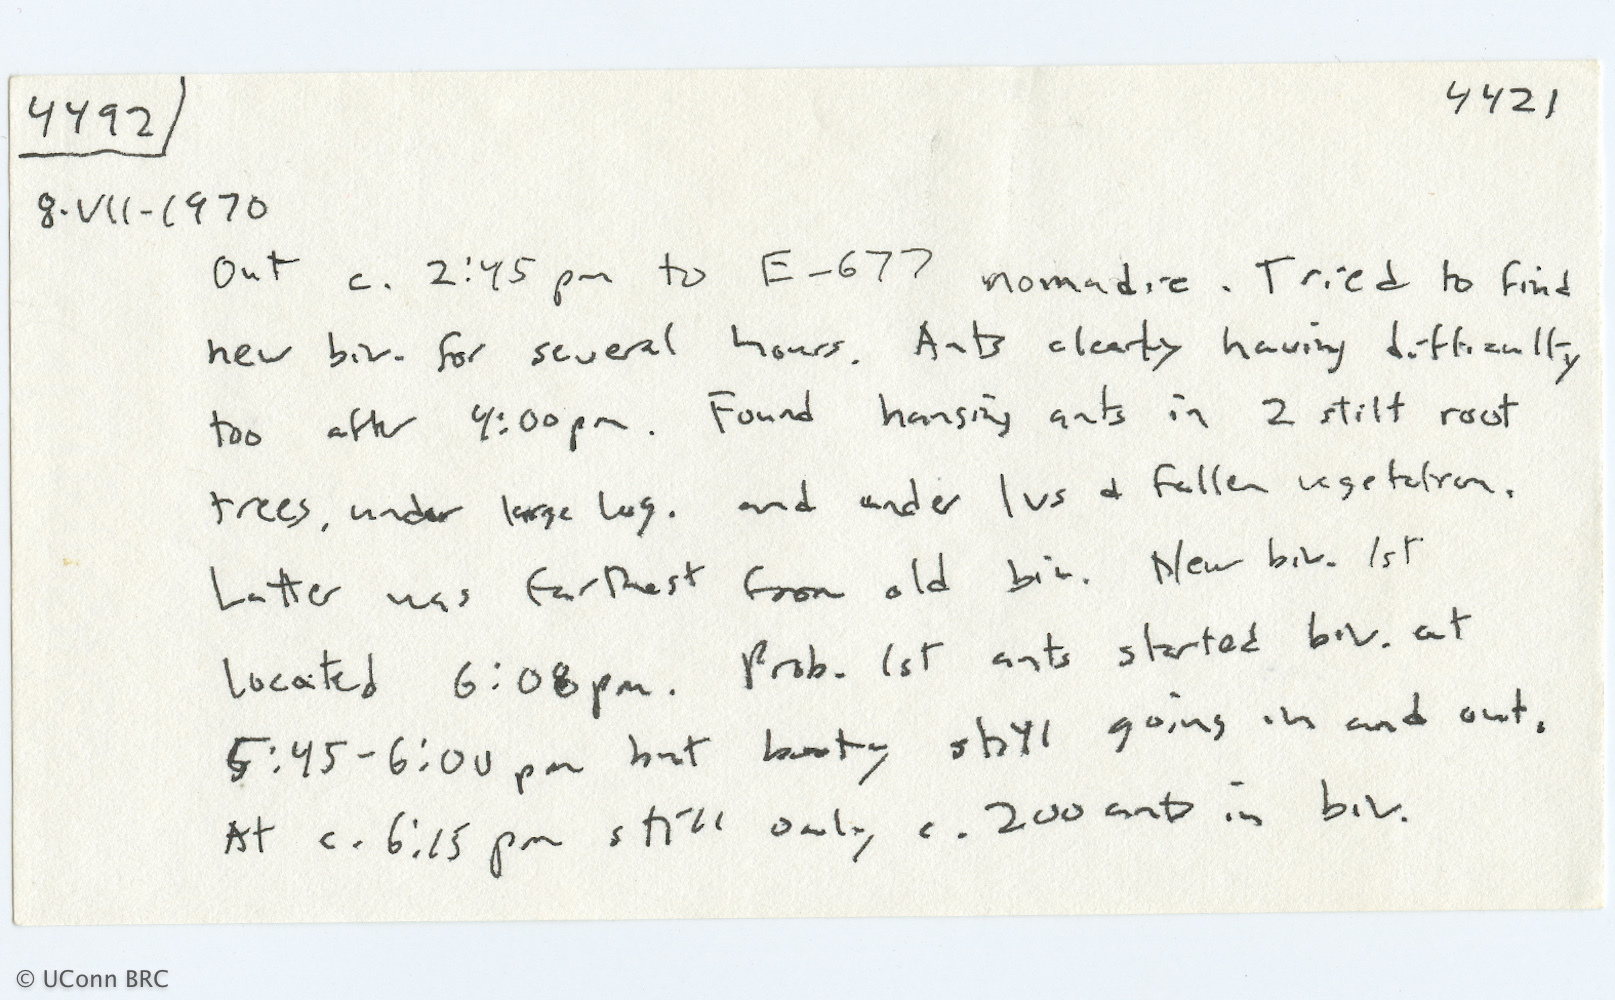 4492
4421
8-VII-1970
Out c. 2:45 pm to E-677 nomadic. Tried to find
new biv. for several hours. Ants clearly having difficulty
too after 4:00 pm. Found hanging ants in 2 stilt root
trees, under large log. and under lvs & fallen vegetation.
Latter was farthest from old biv. New biv. 1st
located 6:08 pm. Prob. 1st ants started biv. at
5:45-6:00 pm but booty still going in and out.
At c. 6:15 pm still only c. 200 ants in biv.
© UConn BRC